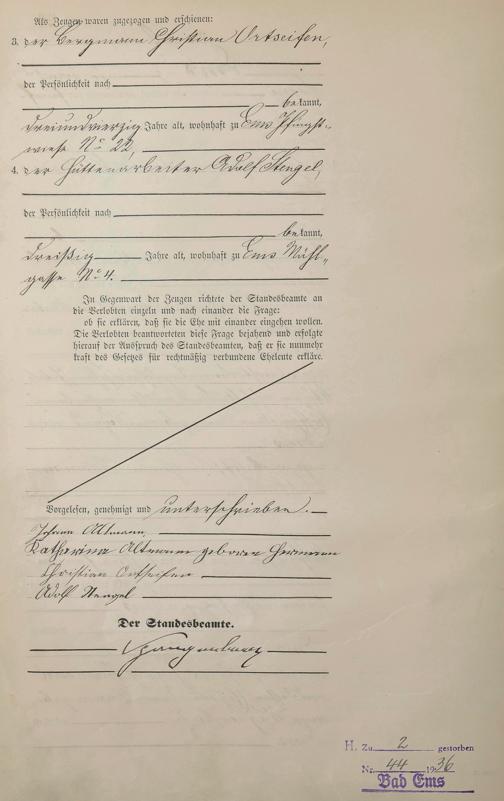 Als Zeugen waren zugezogen und erschienen:
3. der Bergmann Christian Ortseifen,
der Persönlichkeit nach
bekannt,
dreiundvierzig Jahre alt, wohnhaft zu Ems Pfingst-
wiese No 22,
4. der Hüttenarbeiter Adolf Stengel,
der Persönlichkeit nach
bekannt,
dreißig Jahre alt, wohnhaft zu Ems Mühl-
gasse No 4.
In Gegenwart der Zeugen richtete der Standesbeamte an
die Verlobten einzeln und nach einander die Frage:
ob sie erklären, daß sie die Ehe mit einander eingehen wollen.
Die Verlobten beantworteten diese Frage bejahend und erfolgte
hierauf der Ausspruch des Standesbeamten, daß er sie nunmehr
kraft des Gesetzes für rechtmäßig verbundene Eheleute erkläre.
Vorgelesen, genehmigt und unterschrieben.
Johann Altmann
Katharina Altmann geboren Hermann
Christian Ortseifen
Adolf Stengel
Der Standesbeamte.
Spangenberg
H. Zu 2 gestorben
Nr. 44 1936
Bad Ems